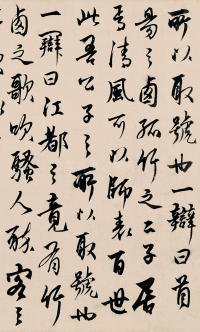 所以取號也一辯曰首
昜之鹵孤竹之公子居
焉清風可以師表百世
此吾公子之所以取號也
一辯曰江都之竟有竹
鹵之歌吹騷人旅客之